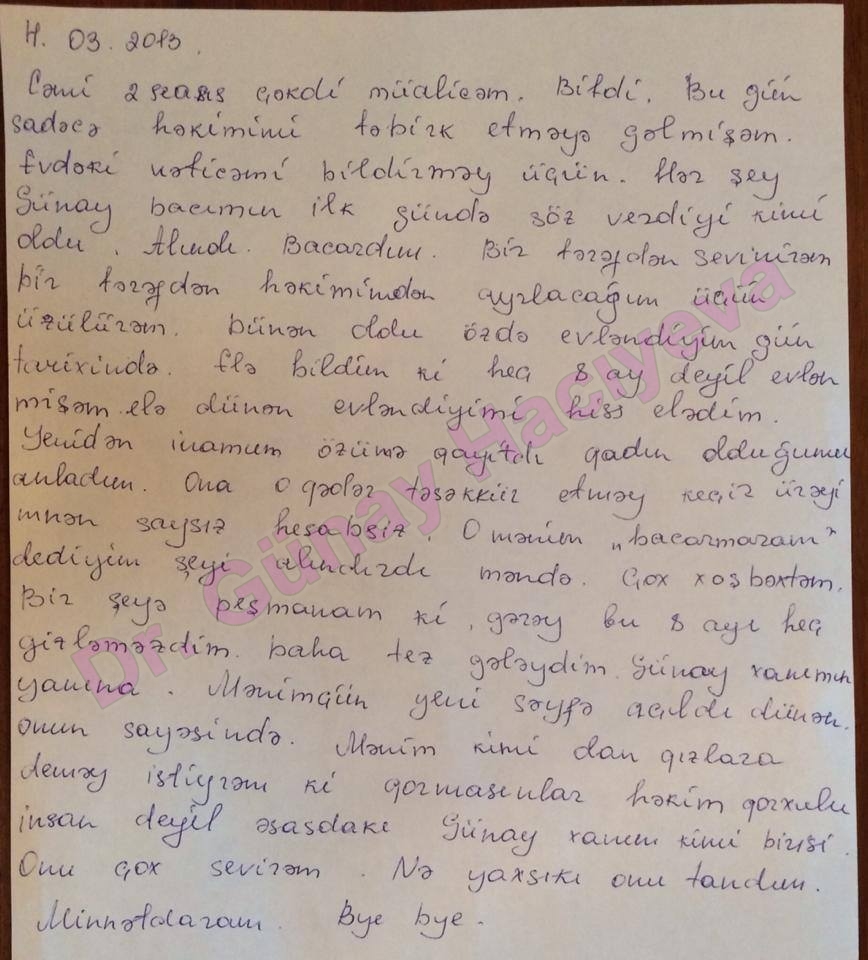 4. 03. 2013.
Cəmi 2 seans çəkdi müalicəm. Bitdi. Bu gün
sadəcə həkimimi təbirk etməyə gəlmişəm.
Evdəki nəticəmi bildirməy üçün. Hər şey
Günay bacımın ilk gündə söz verdiyi kimi
oldu. Alındı. Bacardım. Bir tərəfdən sevinirəm
bir tərəfdən həkimimdən ayrılacağım üçün
üzülürəm. Dünən oldu özdə evləndiyim gün
tarixində. Elə bildim ki heç 8 ay deyil evlən
mişəm elə dünən evləndiyimi hiss elədim.
Yenidən inamım özümə qayıtdı qadın olduğumu
anladım. Ona o qədər təşəkkür etməy keçir ürəyi
mnən saysız hesabsız. O mənim „bacarmaram"
dediyim şeyi alındırdı məndə. Çox xoşbəxtəm.
Bir şeyə peşmanam ki, gərəy bu 8 ayı heç
gizləməzdim. Daha tez gələydim Günay xanımın
yanına. Mənimçün yeni səyfə açıldı dünən.
onun sayəsində. Mənim kimi dan qızlara
deməy istiyrəm ki qorxmasınlar həkim qorxulu
insan deyil əsasdakı Günay xanım kimi birisi.
Onu çox sevirəm. Nə yaxşıkı onu tanıdım.
Minnətdaram. Bye bye.
Dr. Günay Hacıyeva